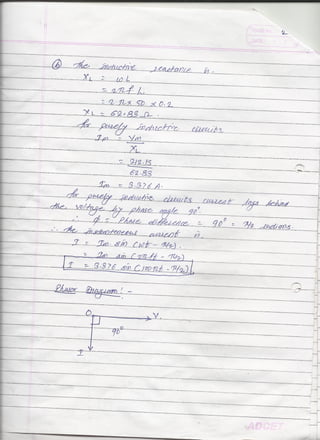 2
(b) The inductive reactance is.
XL = ωL
= 2πf L
= 2π x 50 x 0.2
XL = 62.83 Ω.
for purely inductive circuits
Im = Vm / XL
= 212.13 / 62.83
Im = 3.376 A.
for purely inductive circuits current lags behind
the voltage by phase angle 90°
∴ φ = Phase difference = 90° = π/2 radians
∴ the instantaneous current is.
I = Im sin (ωt - π/2).
= Im sin (2πft - π/2)
I = 3.376 sin (100πt - π/2)
Phasor Diagram :-
O V.
90°
I
ADCET